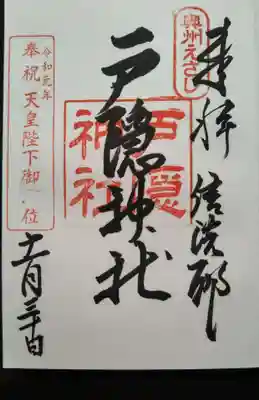 奥州えさし
奉拝
戸隠神社
戸隠
神社
令和元年
奉祝 天皇陛下御即位
十一月三十日